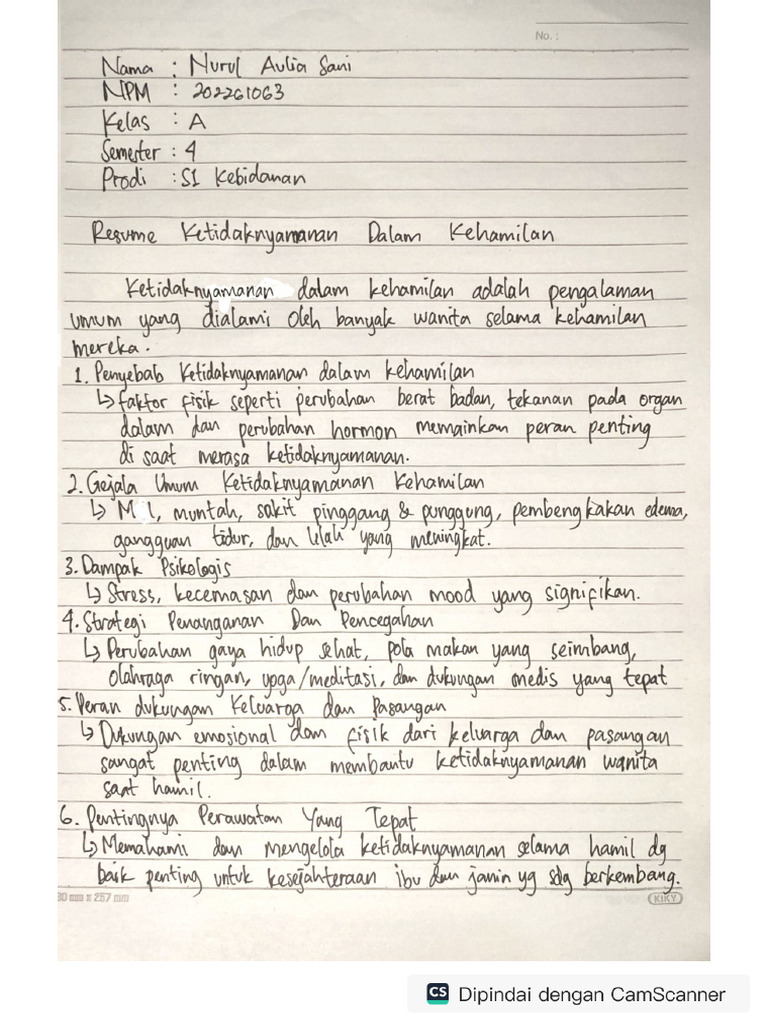 No. :
Nama : Nurul Aulia Sani
NPM : 202261063
Kelas : A
Semester : 4
Prodi : S1 Kebidanan
Resume Ketidaknyamanan Dalam Kehamilan
Ketidaknyamanan dalam kehamilan adalah pengalaman
umum yang dialami oleh banyak wanita selama kehamilan
mereka.
1. Penyebab Ketidaknyamanan dalam kehamilan
↳ faktor fisik seperti perubahan berat badan, tekanan pada organ
dalam dan perubahan hormon memainkan peran penting
di saat merasa ketidaknyamanan.
2. Gejala Umum Ketidaknyamanan Kehamilan
↳ muntah, sakit pinggang & punggung, pembengkakan edema,
gangguan tidur, dan lelah yang meningkat.
3. Dampak Psikologis
↳ Stress, kecemasan dan perubahan mood yang signifikan.
4. Strategi Penanganan Dan Pencegahan
↳ Perubahan gaya hidup sehat, pola makan yang seimbang,
olahraga ringan, yoga/meditasi, dan dukungan medis yang tepat
5. Peran dukungan Keluarga dan Pasangan
↳ Dukungan emosional dan fisik dari keluarga dan pasangan
sangat penting dalam membantu ketidaknyamanan wanita
saat hamil.
6. Pentingnya Perawatan Yang Tepat
↳ Memahami dan Mengelola ketidaknyamanan selama hamil dg
baik penting untuk kesejahteraan ibu dan janin yg sdg berkembang.
80 mm x 257 mm
KIKY
CS Dipindai dengan CamScanner